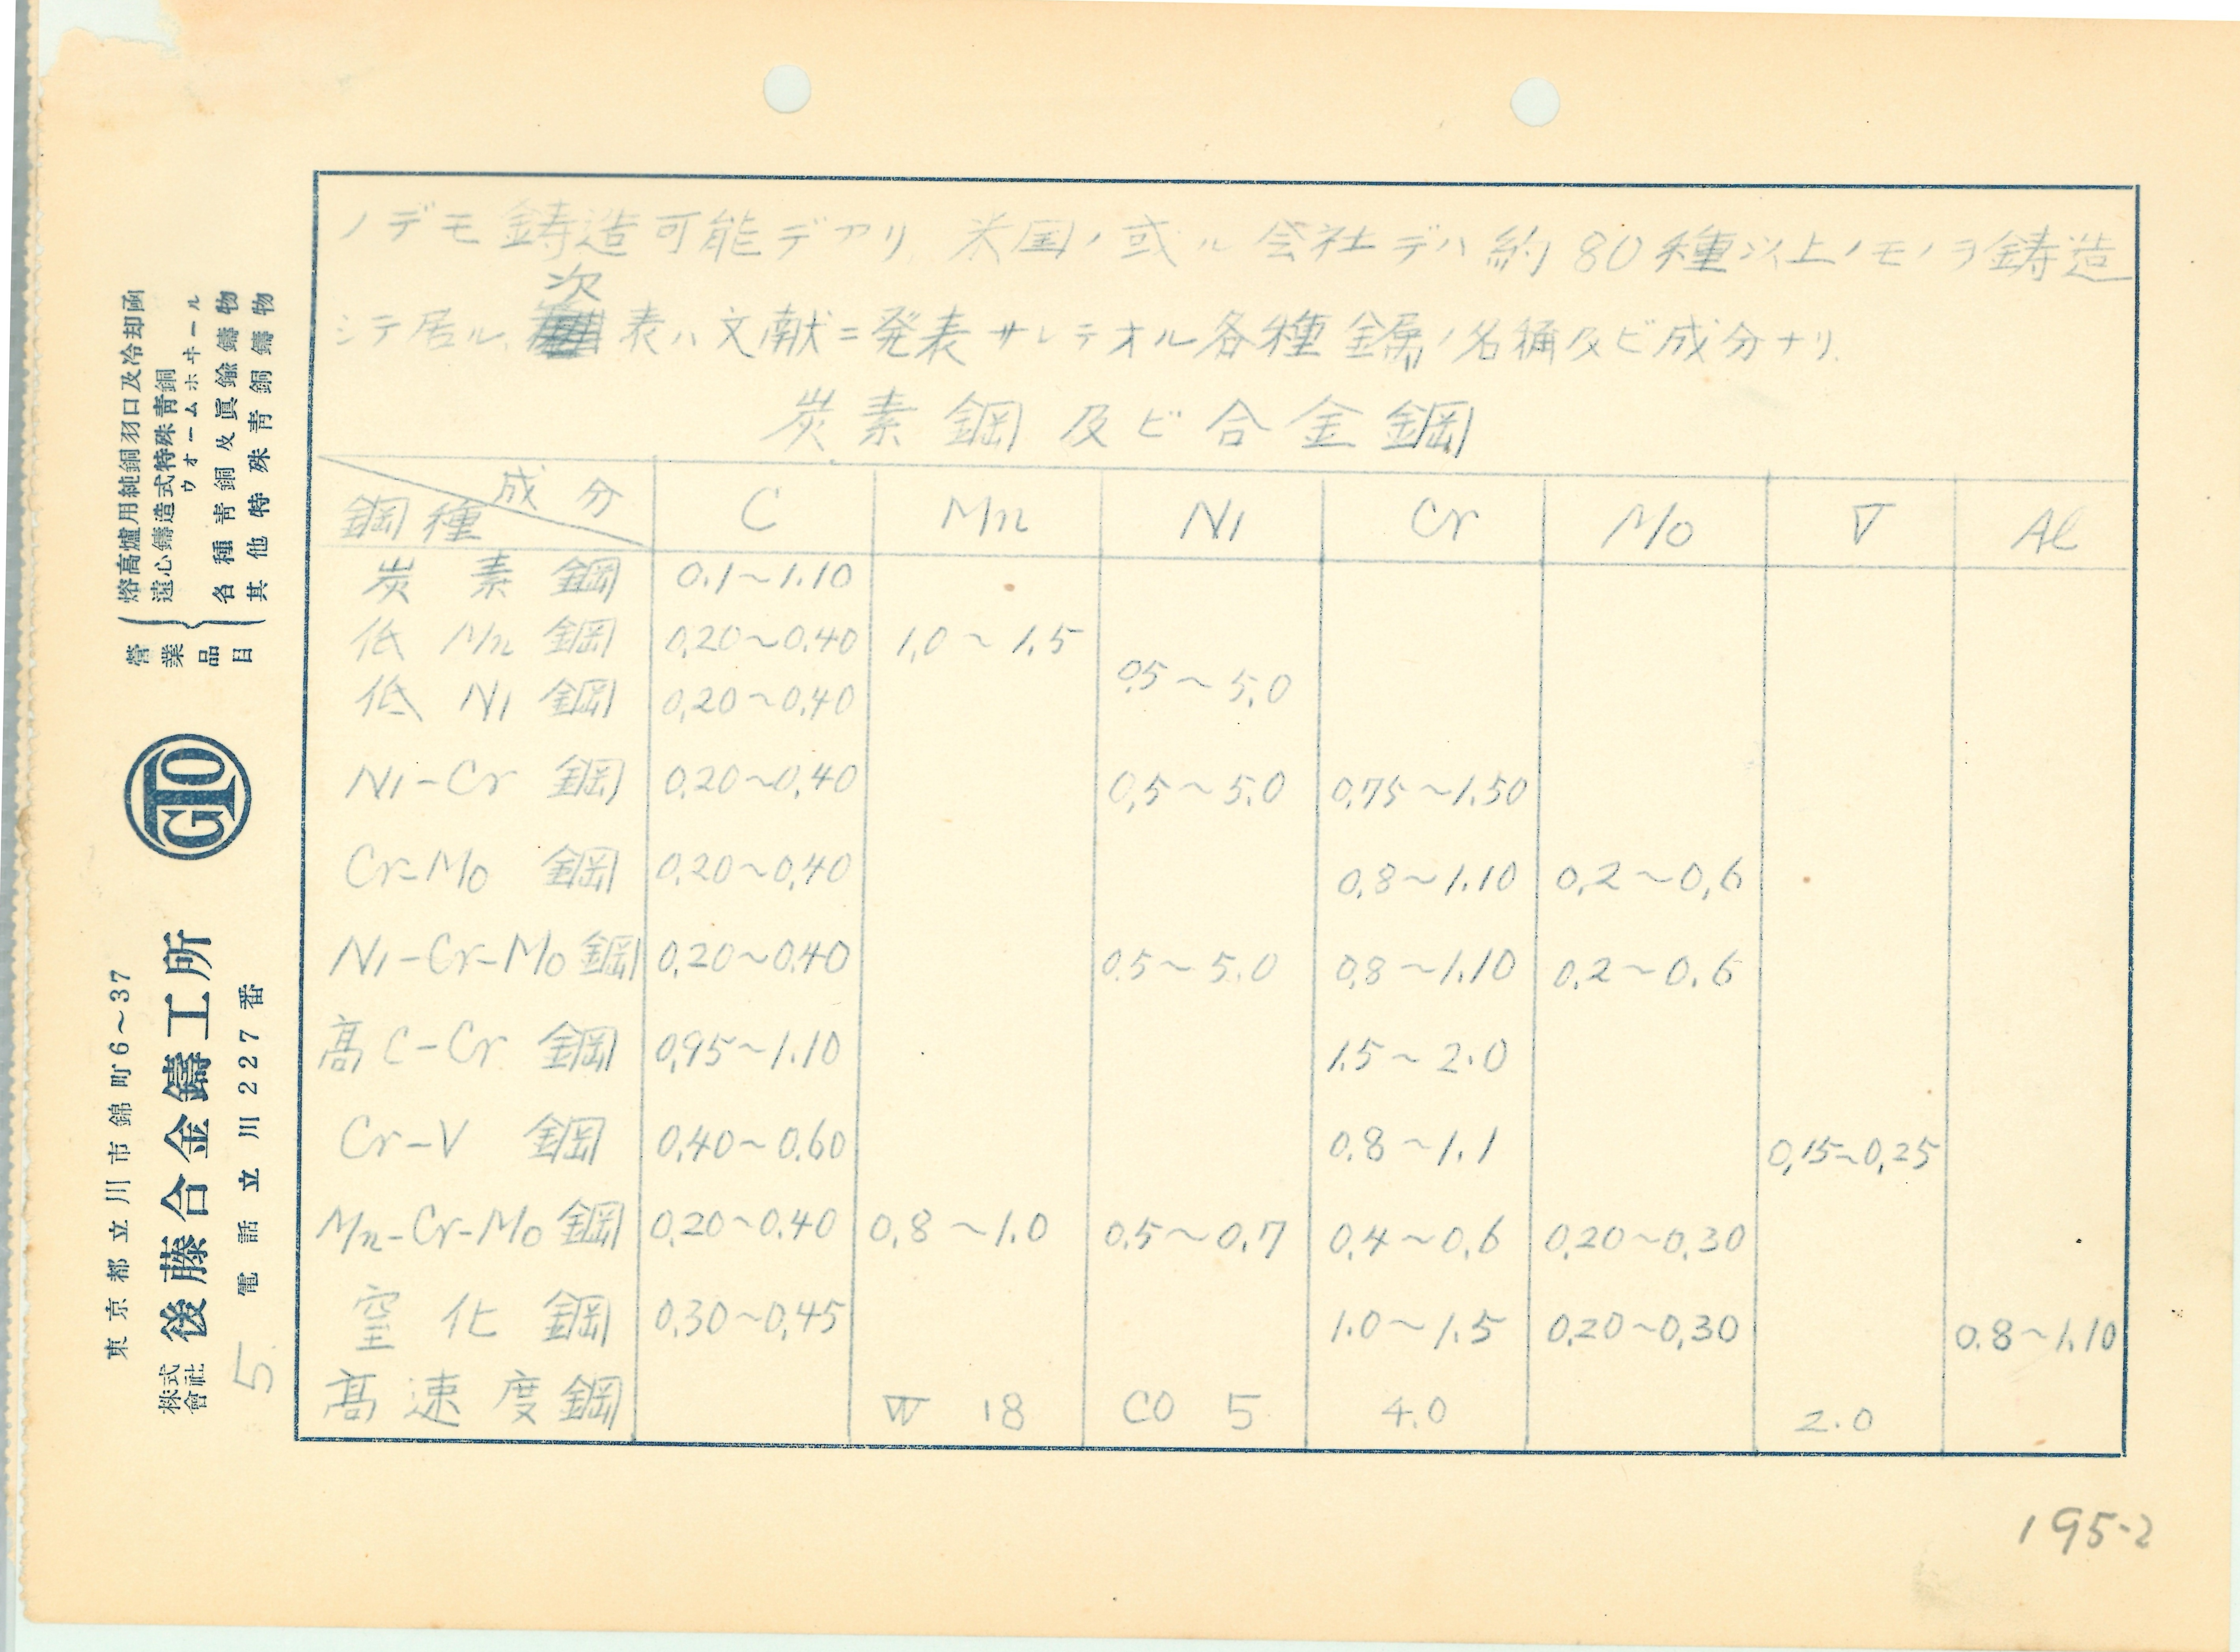 ノデモ鋳造可能デアリ 米国ノ或ル会社デハ約80種以上ノモノヲ鋳造
シテ居ル、次表ハ文献ニ発表サレテオル各種金属ノ名称及ビ成分ナリ.
炭素鋼及ビ合金鋼
鋼種 成分 C Mn Ni Cr Mo V Al
炭素鋼 0.1~1.10
低Mn鋼 0.20~0.40 1.0~1.5
低Ni鋼 0.20~0.40 0.5~5.0
Ni-Cr鋼 0.20~0.40 0.5~5.0 0.75~1.50
Cr-Mo鋼 0.20~0.40 0.8~1.10 0.2~0.6
Ni-Cr-Mo鋼 0.20~0.40 0.5~5.0 0.8~1.10 0.2~0.6
高C-Cr鋼 0.95~1.10 1.5~2.0
Cr-V鋼 0.40~0.60 0.8~1.1 0.15~0.25
Mn-Cr-Mo鋼 0.20~0.40 0.8~1.0 0.5~0.7 0.4~0.6 0.20~0.30
窒化鋼 0.30~0.45 1.0~1.5 0.20~0.30 0.8~1.10
高速度鋼 W 18 CO 5 4.0 2.0
195-2
東京都立川市錦町6~37
株式會社 後藤合金鑄工所
電話立川227番
5.
GTO
營業品目
熔高爐用純銅羽口及冷却函
遠心鑄造式特殊靑銅
ウオームホヰール
各種靑銅及眞鍮鑄物
其他特殊靑銅鑄物